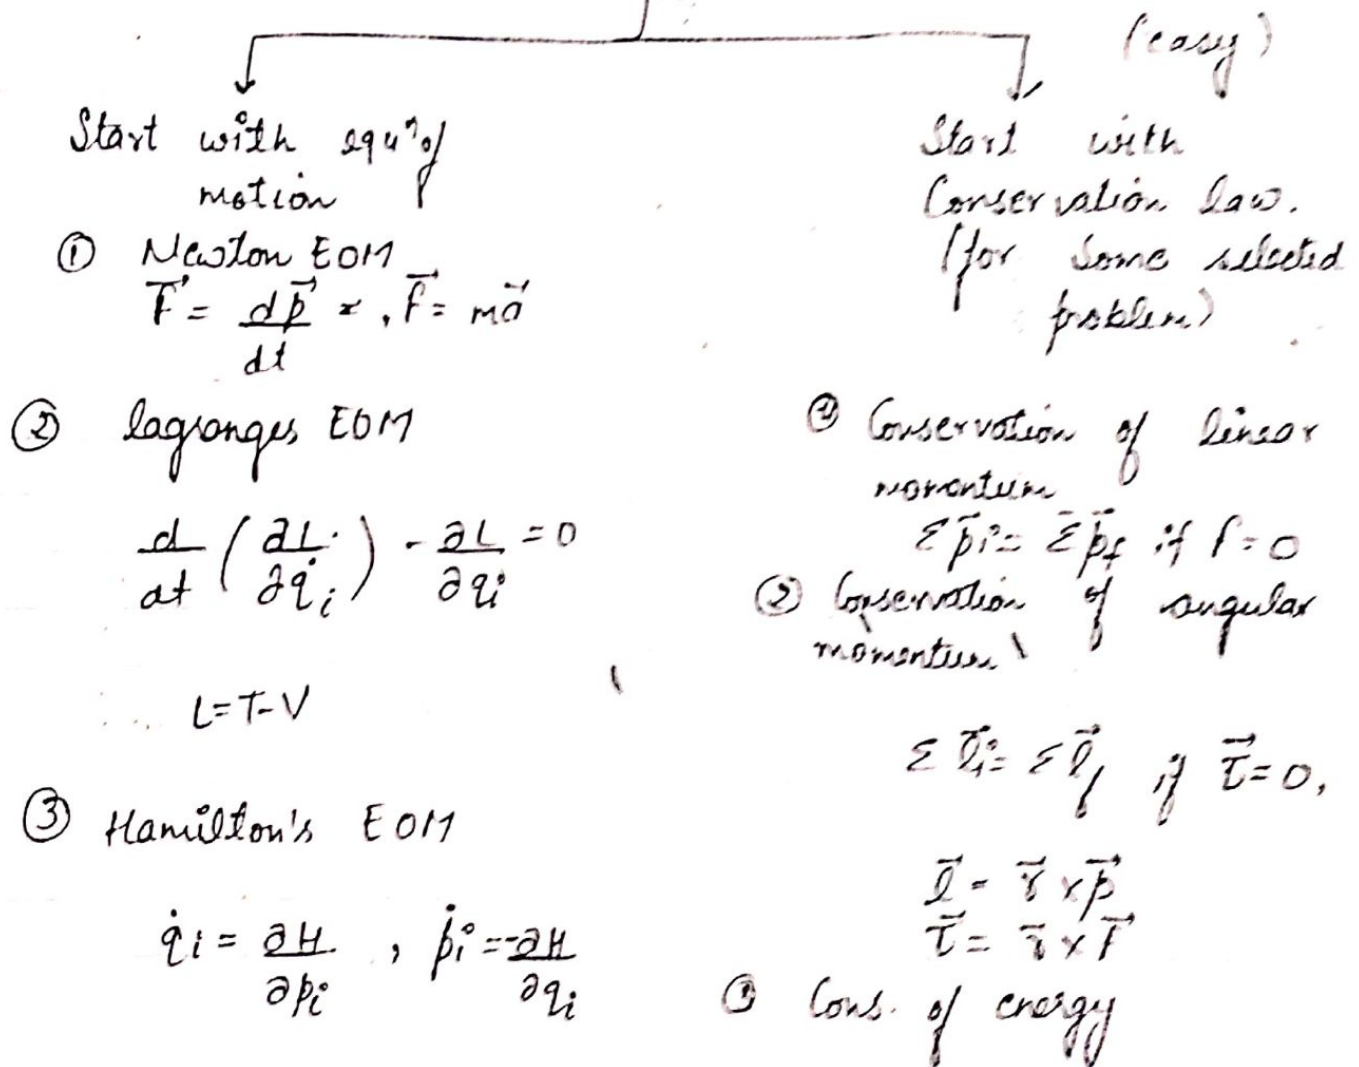 (easy)
Start with equⁿ of
motion
① Newton EOM
$\vec{F} = \frac{d\vec{p}}{dt}$ , $\vec{F} = m\vec{a}$
② lagranges EOM
$\frac{d}{dt}\left(\frac{\partial L}{\partial \dot{q}_i}\right) - \frac{\partial L}{\partial q_i} = 0$
L = T - V
③ Hamilton's EOM
$\dot{q}_i = \frac{\partial H}{\partial p_i}$ , $\dot{p}_i = -\frac{\partial H}{\partial q_i}$
Start with
Conservation law.
(for some selected
problem)
① Conservation of linear
momentum
$\Sigma \vec{p}_i = \Sigma \vec{p}_f$ if f = 0
② Conservation of angular
momentum
$\Sigma \vec{l}_i = \Sigma \vec{l}_f$ if $\vec{\tau} = 0$,
$\vec{l} = \vec{r} \times \vec{p}$
$\vec{\tau} = \vec{r} \times \vec{F}$
③ Cons. of energy